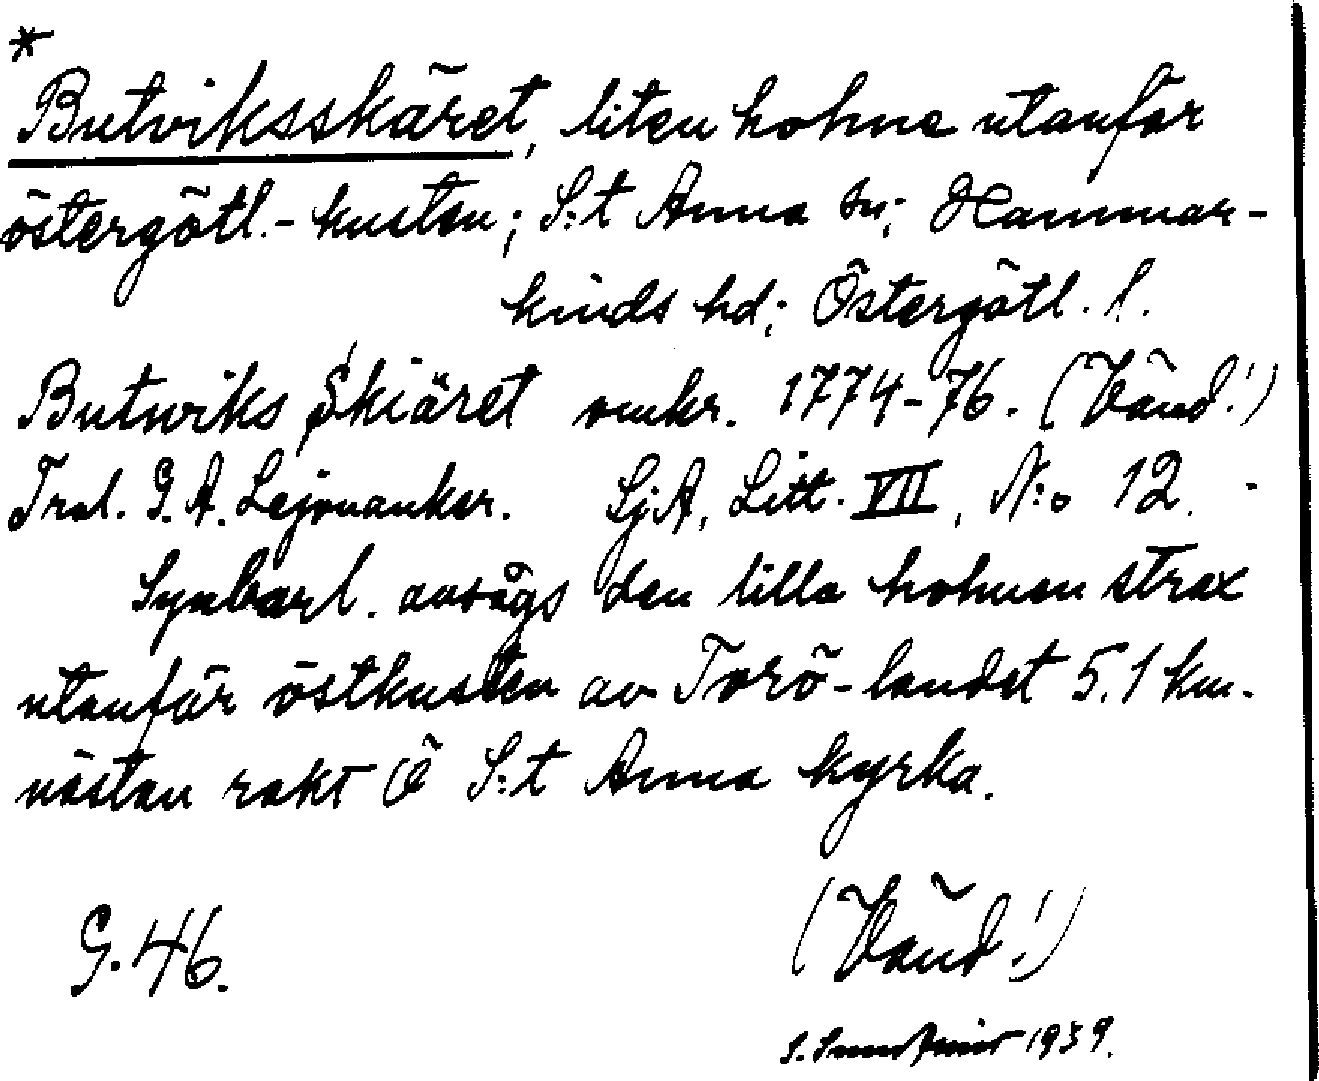 *
Butviksskäret, liten holme utanför
östergötl.-kusten; S:t Anna sn; Hammar-
kinds hd; Östergötl. l.
Butwiks Skiäret omkr. 1774-76. (Vänd!)
Trol. G. A. Lejonanker. SjA, Litt. VII, N:o 12.
Synbarl. avsågs den lilla holmen strax
utanför östkusten av Torö-landet 5.1 km.
nästan rakt Ö S:t Anna kyrka.
G.46.
(Vänd!)
S. 1939.